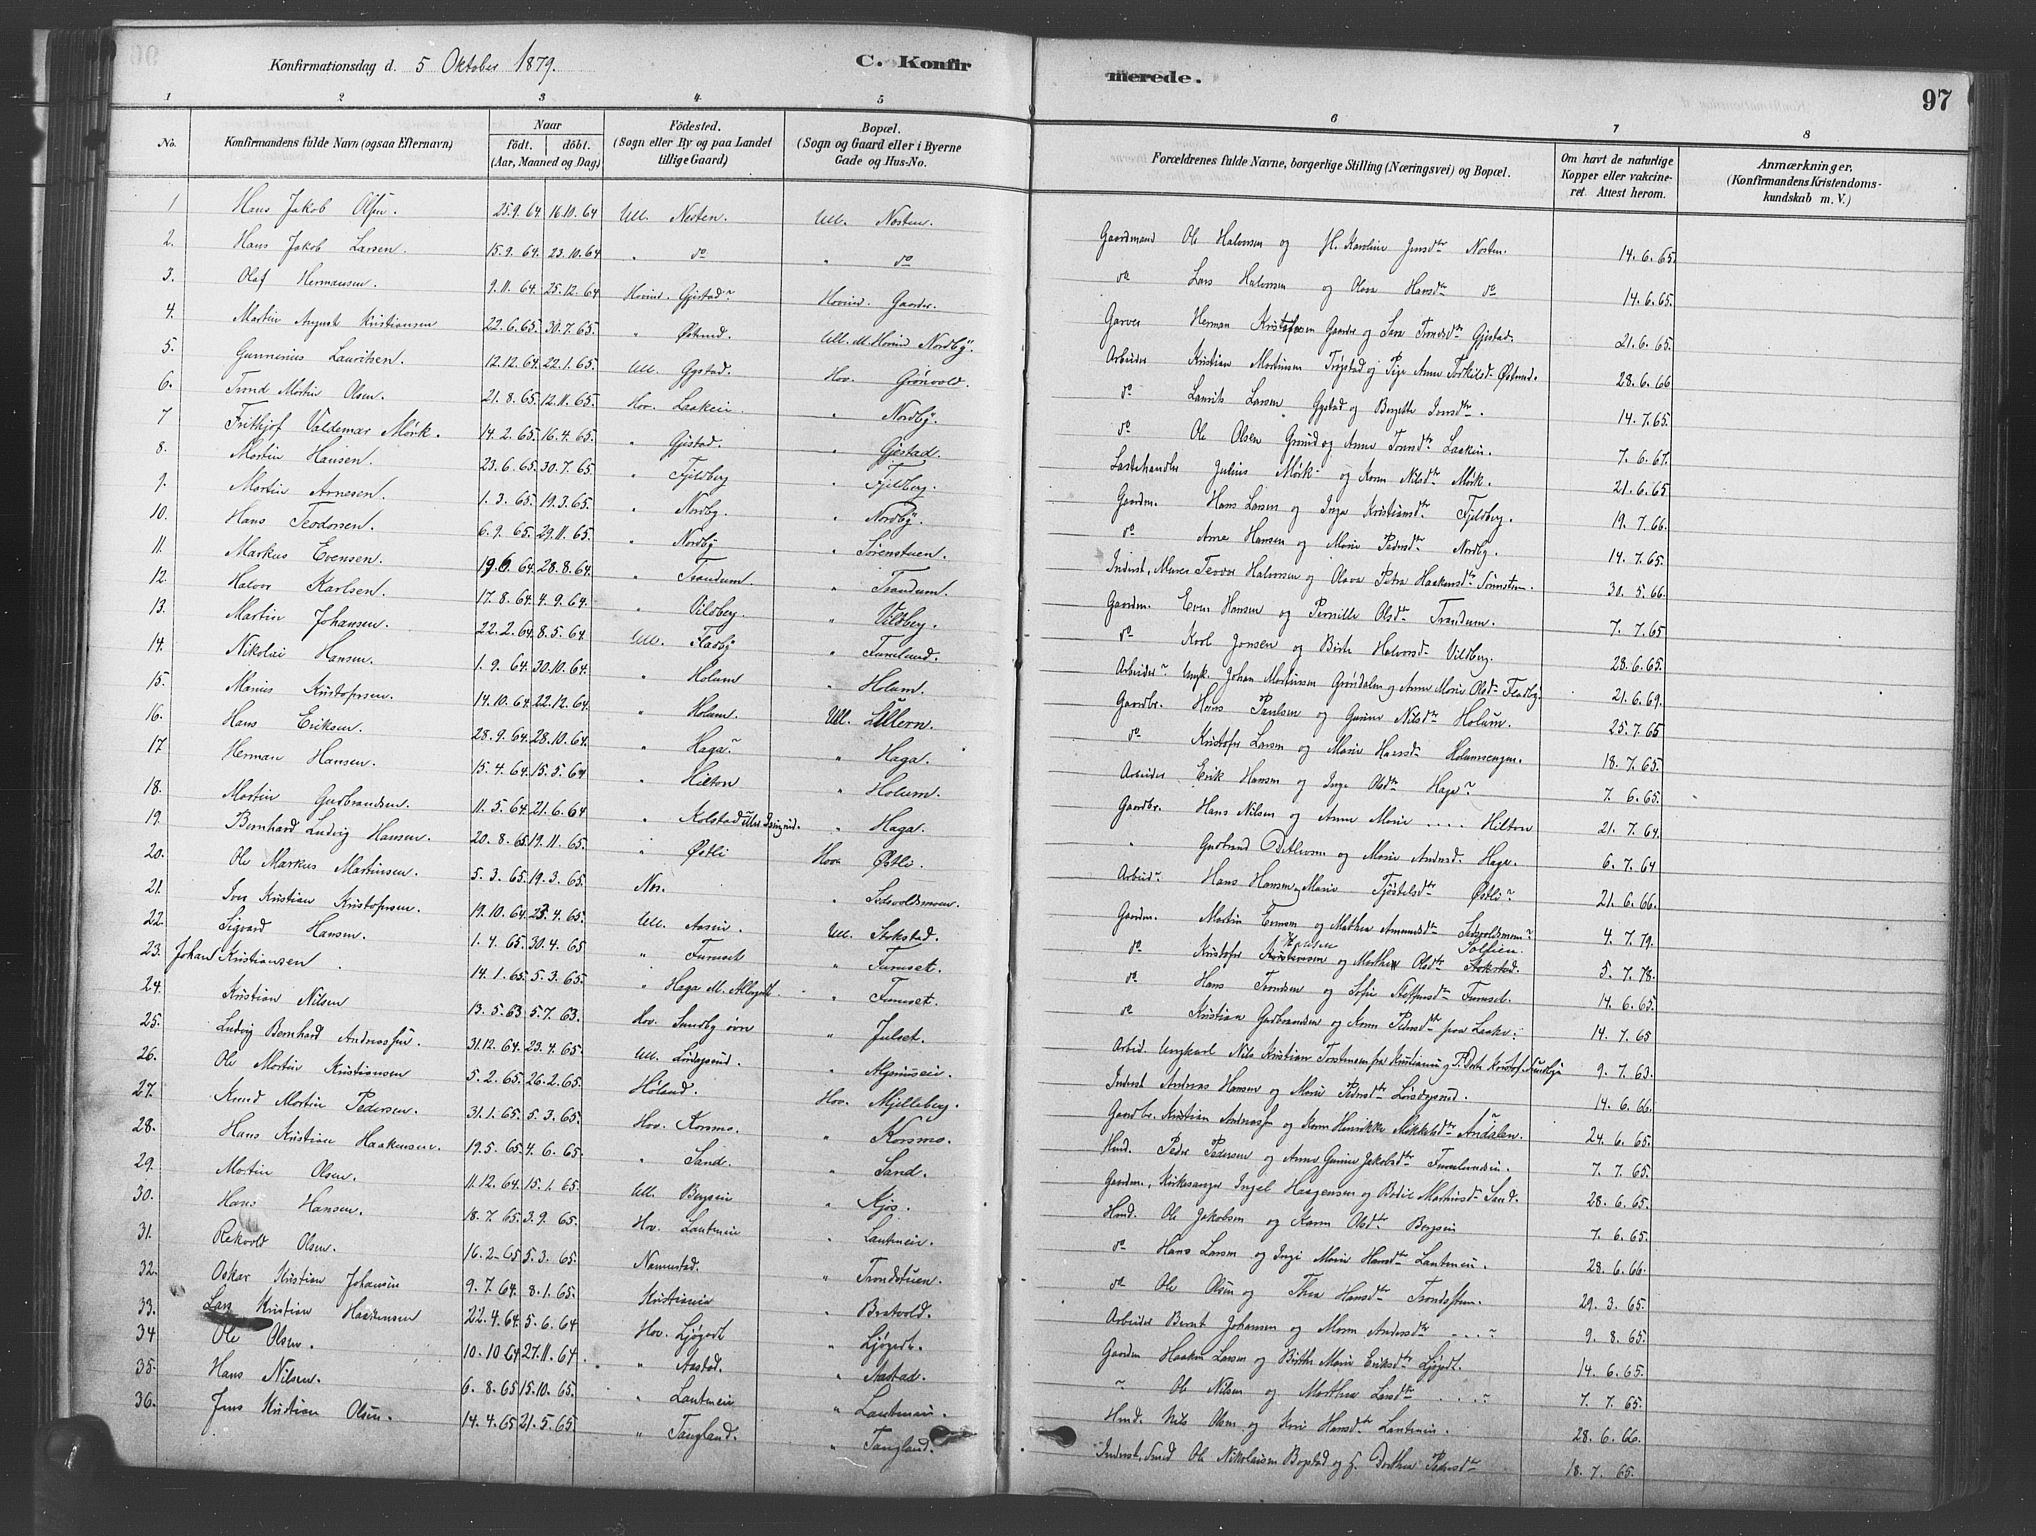 Konfirmationsdag d. 5 Oktober 1879. C. Konfirmerede. 97
1 2 3 4 5 6 7 8
No. Konfirmandens fulde Navn (ogsaa Efternavn) Naar født. døbt. (Aar, Maaned og Dag) Fødested. (Sogn eller By og paa Landet tillige Gaard) Bopæl. (Sogn og Gaard eller i Byerne Gade og Hus-No. Forældrenes fulde Navne, borgerlige Stilling (Næringsvei) og Bopæl. Om havt de naturlige Kopper eller vakcineret. Attest herom. Anmærkninger, (Konfirmandens Kristendomskundskab m. V.)
1 Hans Jakob Olsen. 25.9.64 16.10.64 Ull. Nesten. Ull. Nosten. Gaardmand Ole Halvorsen og H. Karoline Jensdtr Nosten. 14.6.65.
2. Hans Jakob Larsen. 15.9.64. 23.10.64 " do " do do Lars Halvorsen og Olava Hansdtr do 14.6.65.
3. Olaf Hermansen. 9.11.64. 25.12.64 Hovind. Gjestad Hovind. Gaarder. Garver Herman Kristofersen Gaarder og Sara Trondsdtr Gjestad. 21.6.65.
4. Martin August Kristiansen 22.6.65. 30.7.65. " Østmd. Ull. M. Hovind Nordby. Arbeider Kristian Mortinsen Trøgstad og Pige Anne Torkilsd. Østmd. 28.6.66
5. Gunnerius Lauritsen. 12.12.64. 22.1.65. Ull. Gystad. Hov. Grønvold. do Laurits Larsen Gystad og Bergette Iversdtr. 14.7.65.
6. Trond Martin Olsen. 21.8.65. 12.11.65. Hov. Laakein " Nordby. do Ole Olsen Grønid og Anne Trondsdtr Laakin. 7.6.67.
7 Frithjof Valdemar Mørk. 14.2.65. 16.4.65. " Gjestad. " Gjestad. Lasthandler Julius Mørk og Karen Nilsdtr Mørk. 21.6.65
8. Martin Hansen. 23.6.65. 30.7.65. " Fjeldberg " Fjeldberg. Gaardm. Hans Larsen og Inga Kristiansdtr Fjeldberg. 19.7.66.
9. Martin Arnesen. 1.3.65. 19.3.65. " Nordby. " Nordby. do Arne Hansen og Marie Pedersdtr Nordby. 14.7.65.
10. Hans Teodorsen. 6.9.65. 29.11.65. " Nordby " Sørenstuen. Inderst, Murer Teodor Halvorsen og Olava Petra Haakensdtr Sørenstuen. 30.5.66.
11. Markus Evensen. 19.6.64. 28.8.64. " Trandum. " Trandum. Gaardm. Even Hansen og Pernille Olsdtr Trandum. 7.7.65
12. Halvor Karlsen. 17.8.64. 4.9.64. " Vildberg. " Vildberg. do Karl Jonsen og Birte Halvorsd. Vildberg. 28.6.65.
13. Martin Johansen. 22.2.64. 8.5.64 Ull. Fladby " Furulund. Arbeider Ungk. Johan Martinsen Grøndalen og Anne Marie Olsdtr Fladby. 21.6.69.
14. Nikolai Hansen. 1.9.64. 30.10.64. " Holum " Holum. Gaardbr. Hans Paulsen og Gunner Nilsdtr Holum. 25.7.65
15. Marius Kristofersen. 14.10.64. 22.12.64. " Holum. Ull. Lillern. do Kristofer Larsen og Marie Hansd. Holumsengen. 18.7.65.
16. Hans Eriksen. 28.9.64. 28.10.64. " Haga. " Haga. Arbeider Erik Hansen og Inge Olsdtr Haga 7.6.65.
17 Herman Hansen. 15.4.64. 15.5.64 " Hilton " Holum. Gaardbr. Hans Nilsen og Anne Marie .... Hilton 21.7.64.
18. Martin Gudbrandsen. 11.5.64. 21.6.64 " Kolstad " Haga. " Gudbrand Detlevsen og Marie Andersd. Haga. 6.7.64
19. Bernhard Ludvig Hansen. 20.8.65. 19.11.65. " Østli Hov. Østli. Arbeid. Hans Hansen, Marie Fjøstelsdtr Østli 21.6.66.
20. Ole Markus Martinsen. 5.3.65. 19.3.65. Nes. " Sedvoldsmoen. Gaardm. Martin Evensen og Mathea Amundsdtr Sedvoldsmoen 4.7.79.
21. Iver Kristian Kristofersen. 19.10.64. 23.4.65. Ull. Aasen. Ull. Stokstad. do Kristofer Hansen og Marthe Olsdtr Stokstad. 5.7.78.
22. Sigvard Hansen. 1.4.65. 30.4.65 " Furuset " Furuset. do Hans Trondsen og Sofie Steffensdtr Furuset. 14.6.65.
23. Johan Kristiansen. 14.1.65. 5.3.65. " Haga M. " Furuset. do Kristian Gudbrandsen og Karen Pedersdtr paa Laake. 14.7.65
24. Kristian Nilsen 13.5.63 5.7.63. Hov. Sundby øvre " Julset. Arbeid. Ungkarl Nils Kristian Torstensen fra Kristiania og 9.7.63.
25. Ludvig Bernhard Andreassen. 31.12.64. 23.4.65. Ull. " Algarheim. Inderst Andreas Hansen og Marie Pedersdtr 14.6.66.
26. Ole Martin Kristiansen 5.2.65. 26.2.65. Høland. Hov. Mjelleberg. Gaardbr. Kristian Andreassen og Karen Henrikke Mikkelsdtr Andalen. 24.6.65.
27. Knud Martin Pedersen. 31.1.65. 5.3.65. Hov. Korsmo. " Korsmo. Husd. Peder Pedersen og Anne Gurine Jakobsdtr Furulundsein. 7.7.65.
28. Hans Kristian Haakensen. 19.5.65. 4.6.65. " Sand. " Sand. Gaardm, Kirkesanger Ingel Haagensen og Bodil Mathiasdtr Sand. 28.6.65.
29. Martin Olsen. 11.12.64. 15.1.65. Ull. Bergsein " Kjos. Husd. Ole Jakobsen og Karen Olsdtr Bergsein 7.6.65.
30. Hans Hansen. 18.7.65. 3.9.65. Hov. Lautmein " Lautmein. do Hans Larsen og Ingi Marie Hansdtr Lautmein. 28.6.66.
31. Rekvold Olsen. 16.2.65 5.3.65. Nannestad. " Trondstuen. do Ole Olsen og Thea Hansdtr Trondstuen. 29.3.65.
32. Oskar Kristian Johansen 9.7.64. 8.1.65. Kristiania " Bratvold. Arbeider Bernt Johansen og Maren Andersdtr .... 9.8.65.
33. Lars Kristian Haakensen 22.4.64. 5.6.64 Hov. Ljøgodt " Ljøgodt. Gaardm Haaken Larsen og Birthe Marie Eriksdtr Ljøgodt. 14.6.65.
34 Ole Olsen. 10.10.64 27.11.64. " Aastad. " Aastad. " Ole Nilsen og Marthea Larsdtr .... 7.7.65.
35. Hans Nilsen. 6.8.65. 15.10.65. " Lautmein " Lautmein. Husd. Nils Olsen og Kari Hansdtr Lautmein. 28.6.66.
36. Jens Kristian Olsen. 14.4.65. 21.5.65. " Tangland. " Tangland. Inderst, Smed Ole Nikolaisen Bogstad og H. Dorthea Pedersdtr 18.7.65.